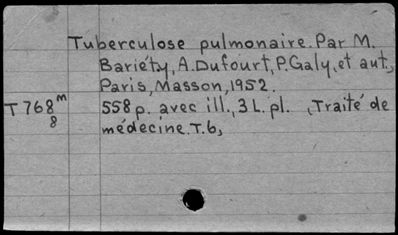 Tuberculose pulmonaire. Par M.
Bariéty, A. Dufourt, P. Galy, et aut.,
Paris, Masson, 1952.
T 768 m 558 p. avec ill., 3 L. pl. (Traité de
8 médecine. T. 6,